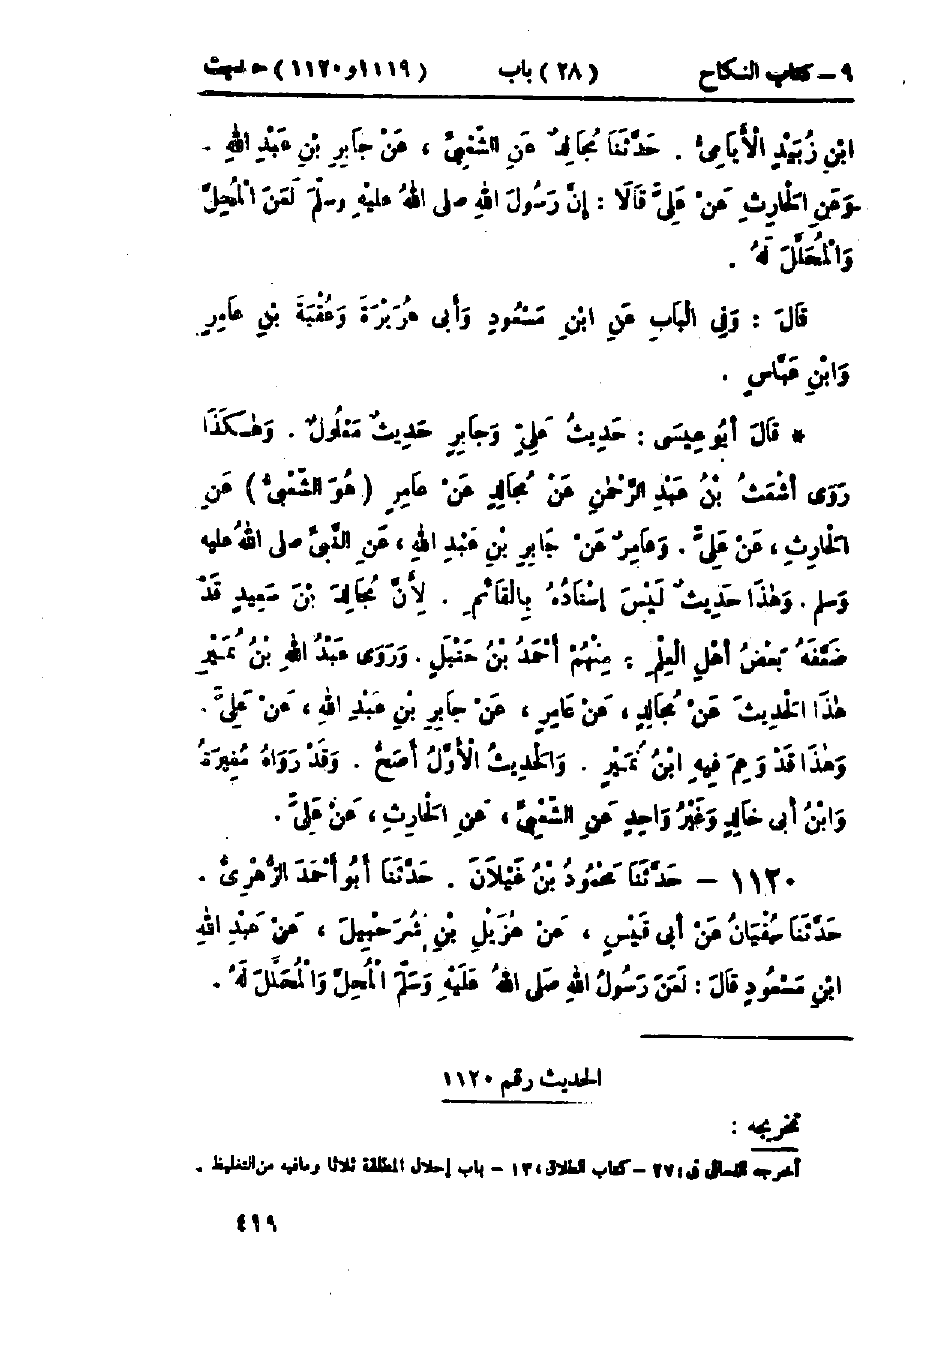 ٩ – كتاب النكاح (٢٨) باب (١١١٩ و ١١٢٠) حديث
ابْنِ زُبَيْدٍ الْأَيَامِىُّ . حَدَّثَنَا مُجَالِدٌ عَنِ الشَّعْبِىِّ ، عَنْ جَابِرِ بْنِ عَبْدِ اللهِ .
وَعَنِ الْحَارِثِ عَنْ عَلِىٍّ قَالَا : إِنَّ رَسُولَ اللهِ صلى اللهُ عليهِ وسلَّمَ لَعَنَ الْمُحِلَّ
وَالْمُحَلَّلَ لَهُ .
قَالَ : وَفِى الْبَابِ عَنِ ابْنِ مَسْعُودٍ وَأَبِى هُرَيْرَةَ وَعُقْبَةَ بْنِ عَامِرٍ
وَابْنِ عَبَّاسٍ .
* قَالَ أَبُو عِيسَى : حَدِيثُ عَلِىٍّ وَجَابِرٍ حَدِيثٌ مَعْلُولٌ . وَهٰكَذَا
رَوَى أَشْعَثُ بْنُ عَبْدِ الرَّحْمٰنِ عَنْ مُجَالِدٍ عَنْ عَامِرٍ (هُوَ الشَّعْبِىُّ) عَنِ
الْحَارِثِ ، عَنْ عَلِىٍّ . وَعَامِرٌ عَنْ جَابِرِ بْنِ عَبْدِ اللهِ ، عَنِ النَّبِىِّ صلى اللهُ عليه
وسلم . وَهٰذَا حَدِيثٌ لَيْسَ إِسْنَادُهُ بِالْقَائِمِ . لِأَنَّ مُجَالِدَ بْنَ سَعِيدٍ قَدْ
ضَعَّفَهُ بَعْضُ أَهْلِ الْعِلْمِ : مِنْهُمْ أَحْمَدُ بْنُ حَنْبَلٍ . وَرَوَى عَبْدُ اللهِ بْنُ نُمَيْرٍ
هٰذَا الْحَدِيثَ عَنْ مُجَالِدٍ ، عَنْ عَامِرٍ ، عَنْ جَابِرِ بْنِ عَبْدِ اللهِ ، عَنْ عَلِىٍّ .
وَهٰذَا قَدْ وَهِمَ فِيهِ ابْنُ نُمَيْرٍ . وَالْحَدِيثُ الْأَوَّلُ أَصَحُّ . وَقَدْ رَوَاهُ مُغِيرَةُ
وَابْنُ أَبِى خَالِدٍ وَغَيْرُ وَاحِدٍ عَنِ الشَّعْبِىِّ ، عَنِ الْحَارِثِ ، عَنْ عَلِىٍّ .
١١٢٠ – حَدَّثَنَا مَحْمُودُ بْنُ غَيْلَانَ . حَدَّثَنَا أَبُو أَحْمَدَ الزُّهْرِىُّ .
حَدَّثَنَا سُفْيَانُ عَنْ أَبِى قَيْسٍ ، عَنْ هُزَيْلِ بْنِ شُرَحْبِيلَ ، عَنْ عَبْدِ اللهِ
ابْنِ مَسْعُودٍ قَالَ : لَعَنَ رَسُولُ اللهِ صَلَّى اللهُ عَلَيْهِ وَسَلَّمَ الْمُحِلَّ وَالْمُحَلَّلَ لَهُ .
الحديث رقم ١١٢٠
تخريجه :
أخرجه النسائى فى : ٢٧ – كتاب الطلاق ، ١٣ – باب إحلال المطلقة ثلاثا وما فيه من التغليظ .
٤١٩